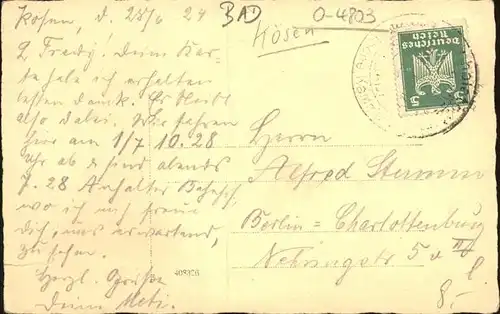 Kösen, d. 28/6 24
BAD
O-4803
Kösen
L. Fredy! Deine Kar-
te habe ich erhalten
besten Dank. Es bleibt
also dabei. Wir fahren
hier am 1/7 10.28
Uhr ab & sind abends
7.28 Anhalter Bahnhf.
wo ich mich freue
dich, uns erwartend,
zu sehen.
Herzl. Grüße
Deine
Deutsches
Reich
5 5
Herrn
Alfred
Berlin = Charlottenburg
Nehringstr. 5a
8,-